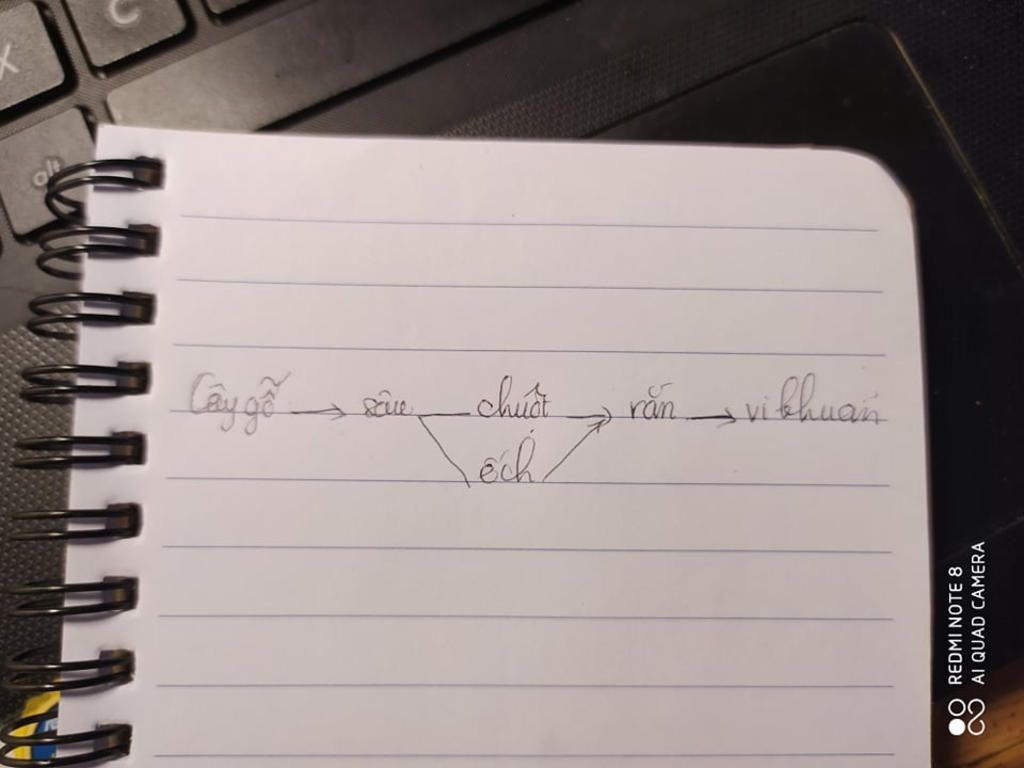 X
C
alt
Cây gỗ → sâu — chuột → rắn → vi khuẩn
ếch
REDMI NOTE 8
AI QUAD CAMERA